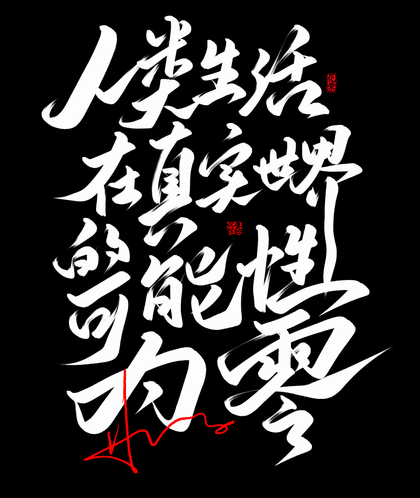 人类生活
在真实世界
的可能性
为零